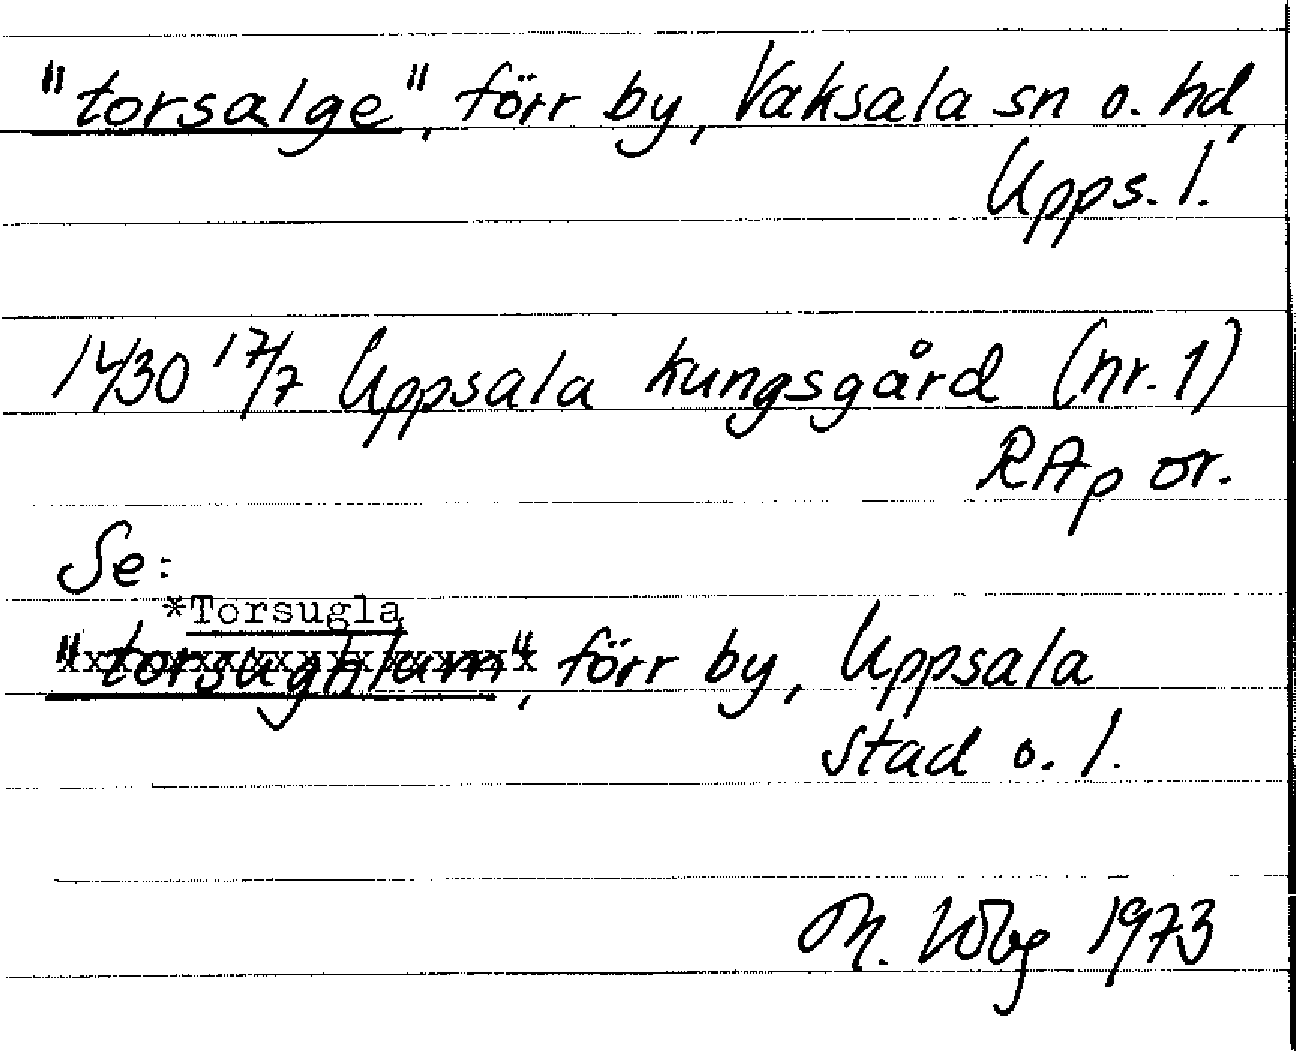 "torsalge", förr by, Vaksala sn o. hd,
Upps. l.
1430 17/7 Uppsala kungsgård (nr. 1)
RAp or.
Se:
*Torsugla
"torsughlum", förr by, Uppsala
stad o. l.
M. Wbg 1973